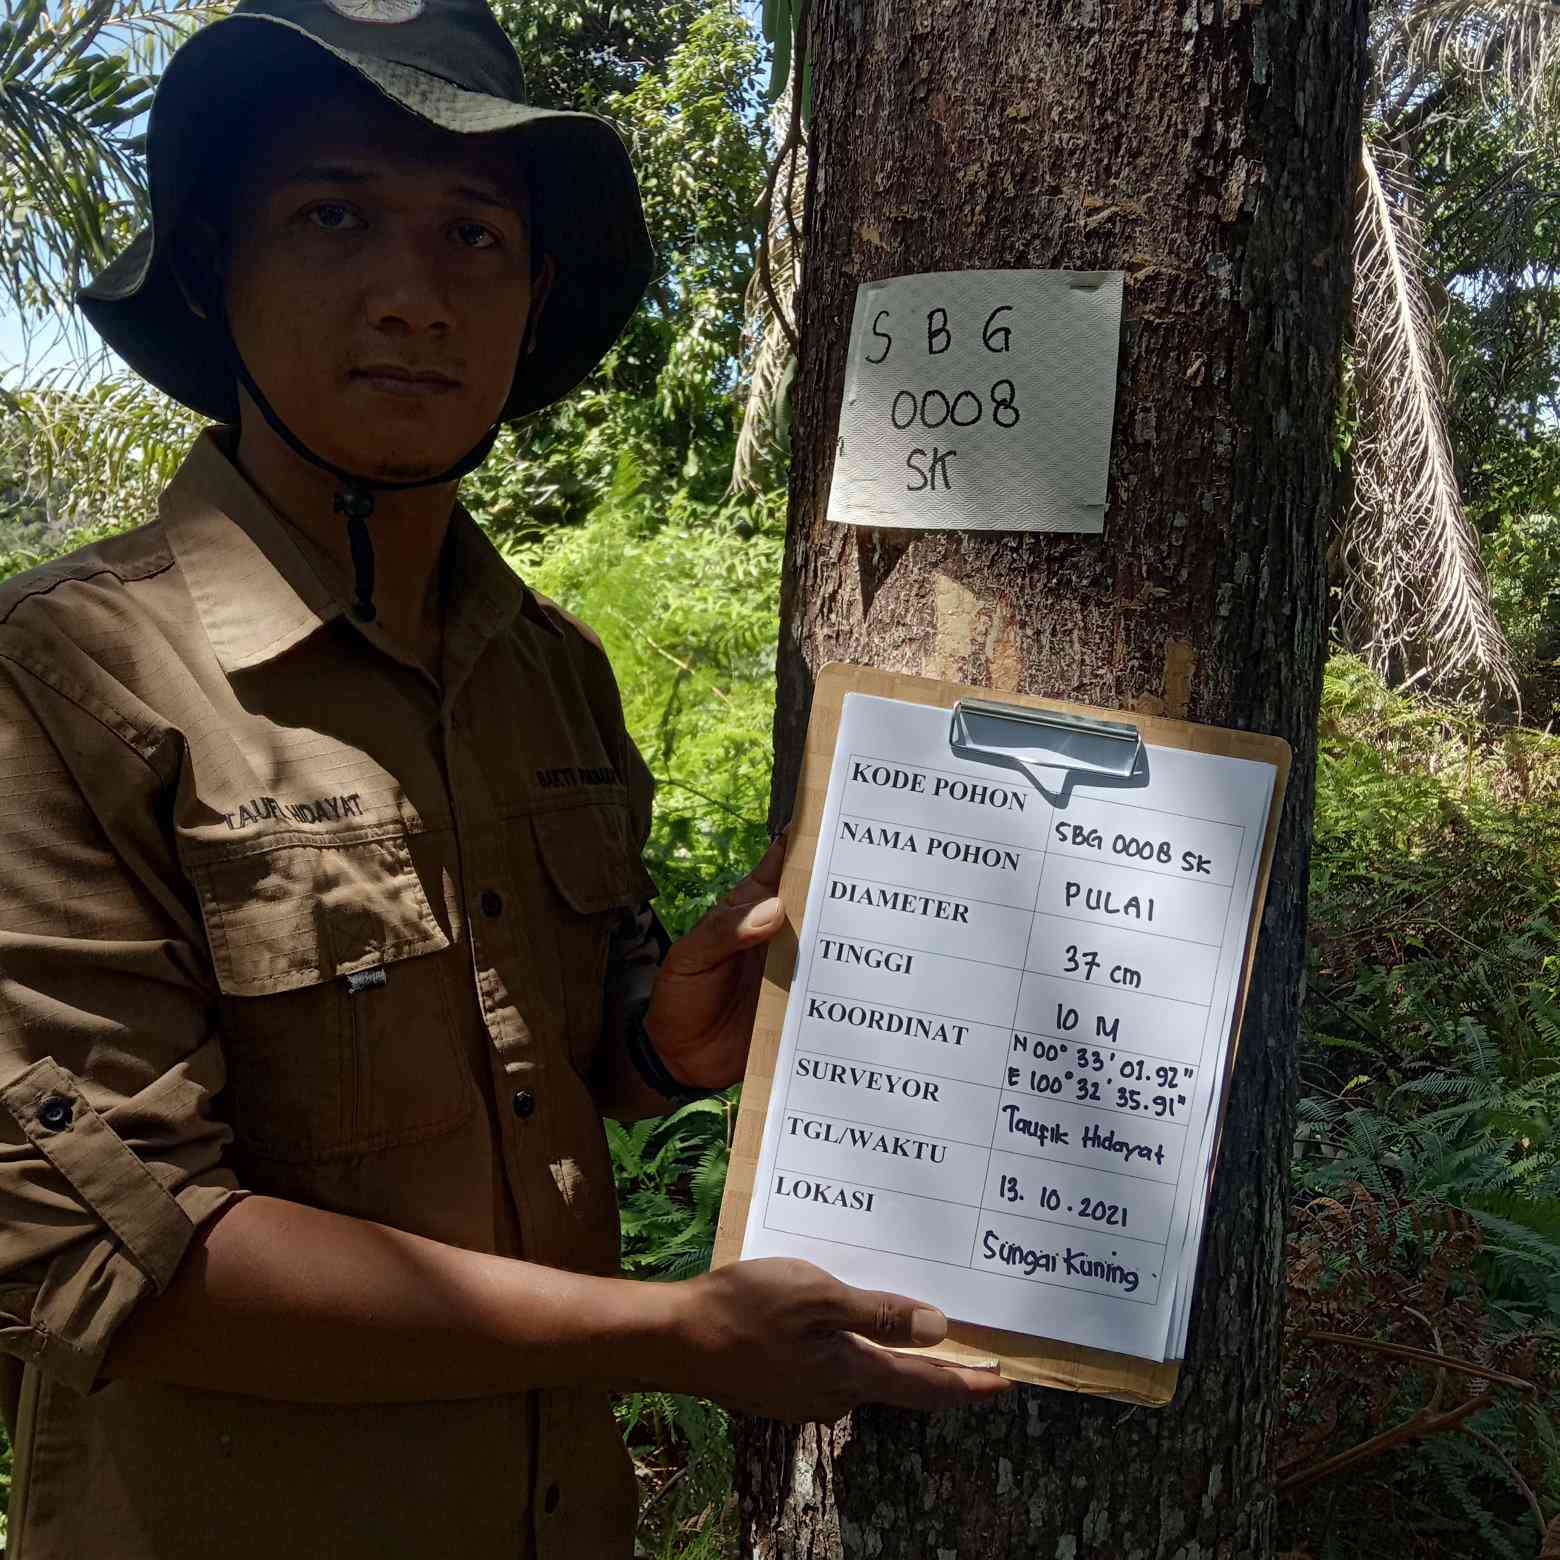 S B G
0008
SK
TAUFIK HIDAYAT
BAKTI
KODE POHON SBG 0008 SK
NAMA POHON PULAI
DIAMETER 37 cm
TINGGI 10 M
KOORDINAT N 00° 33' 01.92"
E 100° 32' 35.91"
SURVEYOR Taufik Hidayat
TGL/WAKTU 13. 10. 2021
LOKASI Sungai Kuning